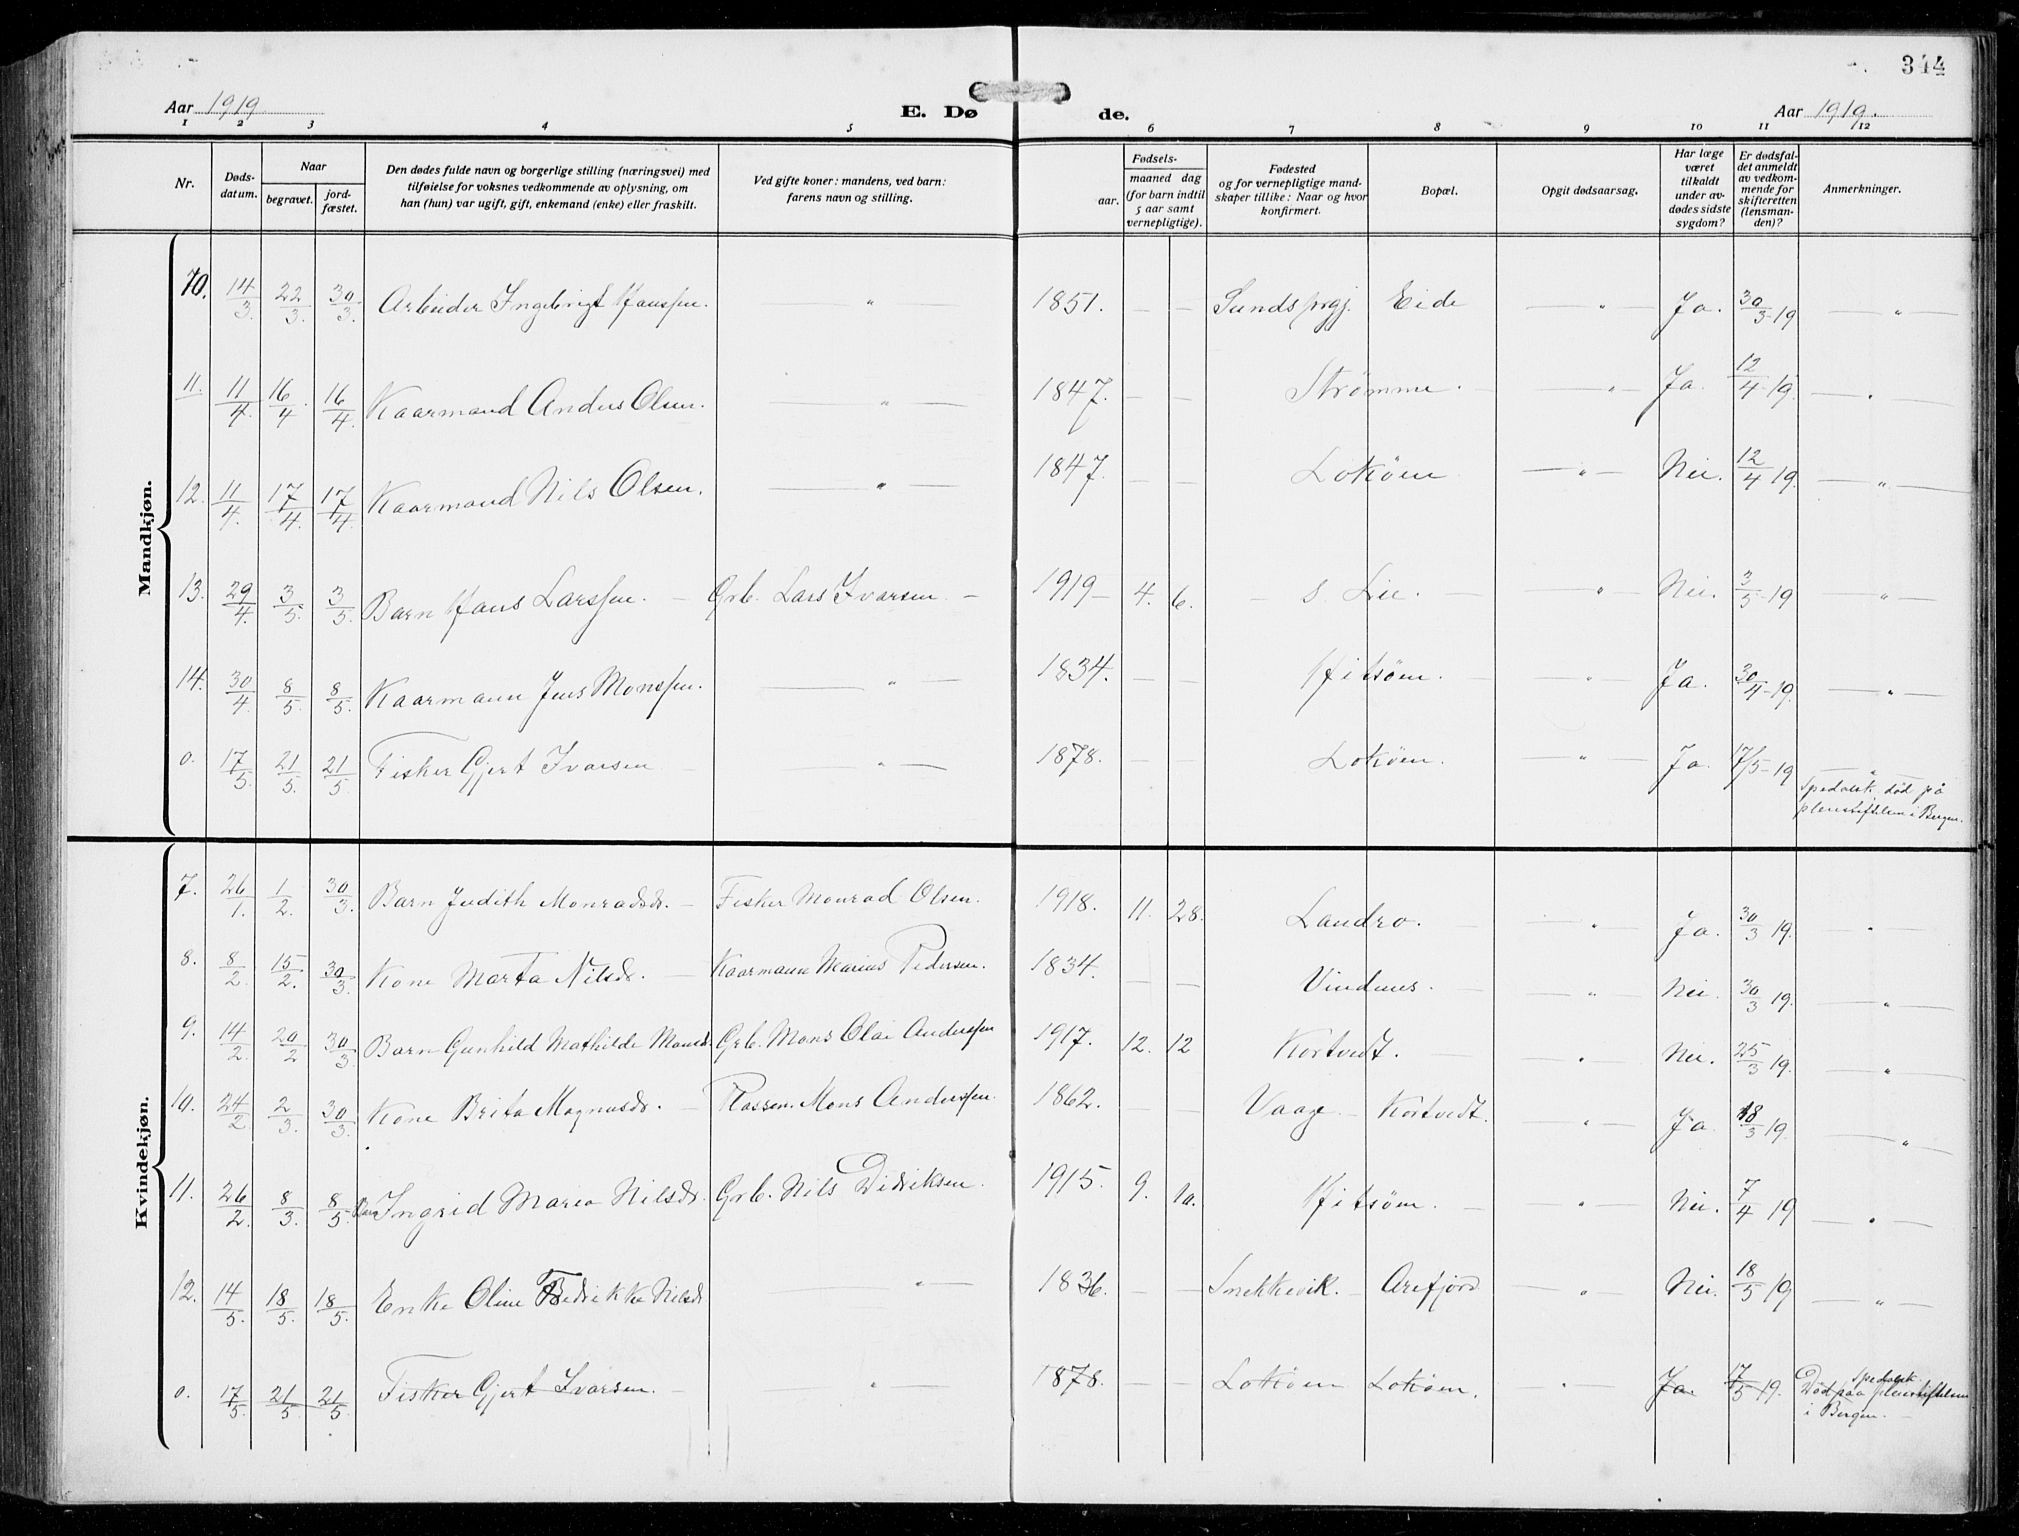 344
Aar 1919
E. Dø
de.
Aar 1919.
1 2 3 4 5 6 7 8 9 10 11 12
Nr.
Døds-
datum.
Naar
begravet.
jord-
fæstet.
Den dødes fulde navn og borgerlige stilling (næringsvei) med
tilføielse for voksnes vedkommende av oplysning, om
han (hun) var ugift, gift, enkemand (enke) eller fraskilt.
Ved gifte koner: mandens, ved barn:
farens navn og stilling.
Fødsels-
aar.
maaned dag
(for barn indtil
5 aar samt
vernepligtige).
Fødested
og for vernepligtige mand-
skaper tillike: Naar og hvor
konfirmert.
Bopæl.
Opgit dødsaarsag.
Har læge
været
tilkaldt
under av-
dødes sidste
sygdom?
Er dødsfal-
det anmeldt
av vedkom-
mende for
skifteretten
(lensman-
den)?
Anmerkninger.
Mandkjøn.
10. 14/3. 22/3. 30/3. Arbeider Ingebrigt Hanssen. — " 1851. — — Sunds prgj. Eide — " — Ja. 30/3-19 — " —
11. 11/4. 16/4. 16/4. Kaarmand Anders Olsen. — " — 1847. — — Strømme. — — " — Ja. 12/4-19. — " —
12. 11/4. 17/4. 17/4. Kaarmand Nils Olsen. — " — 1847. — — Lokøen — " — Nei. 12/4 19. — " —
13. 29/4. 3/5. 3/5. Barn Hans Larssen. — Grb. Lars Ivarsen. — 1919 — 4. 6. — s. Lie. — — " — Nei. 3/5-19 — " —
14. 30/4. 8/5. 8/5. Kaarmann Jens Monssen. — " — 1834. — — Hitsøen. — — " — Ja. 30/4-19. — " —
0. 17/5. 21/5. 21/5. Fisker Gjert Ivarsen — " — 1878. — — Lokøen. — " — Ja. 17/5-19 — " —
Spedalsk død på
pleiestiftelsen i Bergen.
Kvindekjøn.
7. 26/1. 1/2. 30/3. Barn Judith Monradsdr. — Fisker Monrad Olsen. 1918. 11. 28. Landro. — — " — Ja. 30/3 19. — " —
8. 8/2. 15/2. 30/3. Kone Marta Nilsdr. — Kaarmann Marius Pedersen. 1834. — — Vindenes. — — " — Nei. 30/3 19. — " —
9. 14/2. 20/2 30/3. Barn Gunhild Mathilde Monsdr. Grb. Mons Olai Anderssen 1917. 12. 12 Kørtvedt. — — " — Nei. 25/3 19. — " —
10. 24/2 2/3. 30/3. Kone Brita Magnusdr. — Plassem. Mons Anderssen. 1862. — — Vaage — Kørtvedt. — " — Ja. 18/3 19. — "
11. 26/2. 8/3. 8/5. Barn Ingrid Maria Nilsdr. Grb. Nils Didriksen. 1915. 9. 10. Hitsøen. — — " — Nei. 7/4 19 — " —
12. 14/5. 18/5. 18/5. Enke Oline Fredrikke Nilsdr — " — 1836. — — Snekkevik. — Arefjord — " — Nei. 18/5 19 — " —
0. 17/5. 21/5. 21/5. Fisker Gjert Ivarsen. — — " — 1878. — — Lokøen Lokøen. — " — Ja. 17/5 19. Spedalsk
Død paa pleiestiftelsen
i Bergen. —